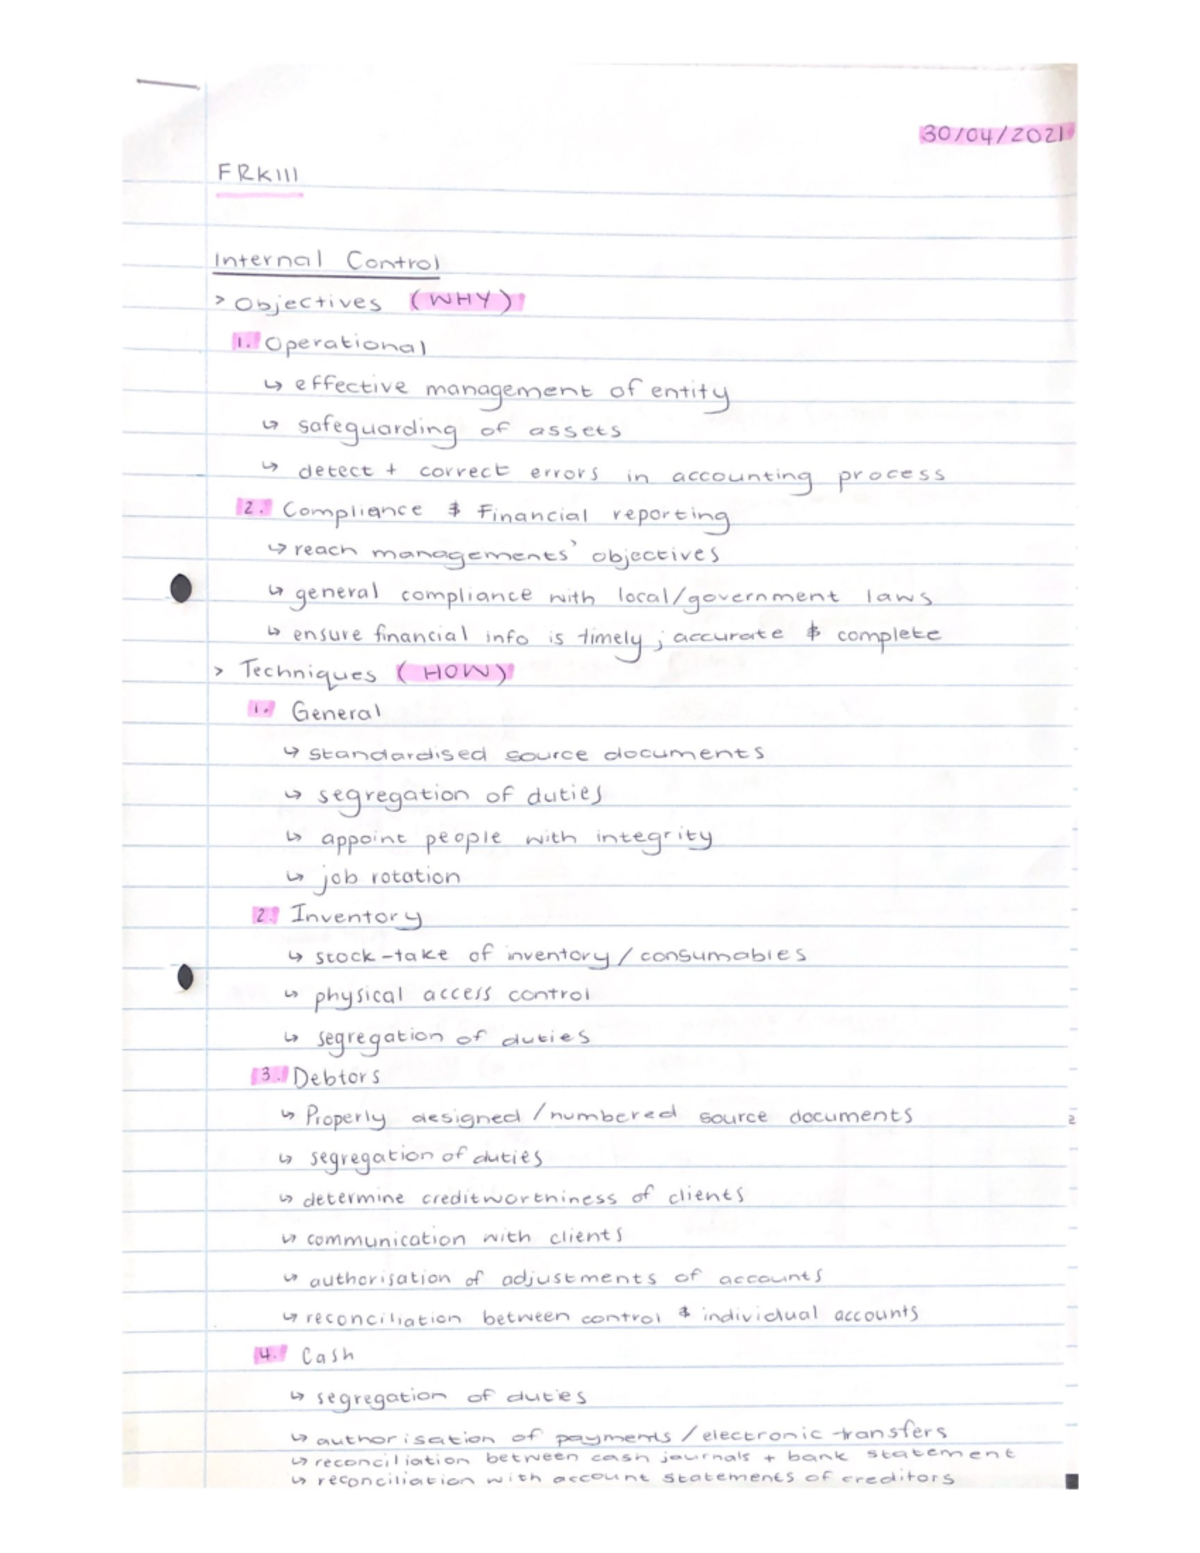 30/04/2021
FRK111
Internal Control
> Objectives (WHY)
1. Operational
↳ effective management of entity
↳ safeguarding of assets
↳ detect + correct errors in accounting process
2. Compliance & Financial reporting
↳ reach managements' objectives
↳ general compliance with local/government laws
↳ ensure financial info is timely; accurate & complete
> Techniques (HOW)
1. General
↳ standardised source documents
↳ segregation of duties
↳ appoint people with integrity
↳ job rotation
2. Inventory
↳ stock-take of inventory/consumables
↳ physical access control
↳ segregation of duties
3. Debtors
↳ Properly designed/numbered source documents
↳ segregation of duties
↳ determine creditworthiness of clients
↳ communication with clients
↳ authorisation of adjustments of accounts
↳ reconciliation between control & individual accounts
4. Cash
↳ segregation of duties
↳ authorisation of payments/electronic transfers
↳ reconciliation between cash journals + bank statement
↳ reconciliation with account statements of creditors